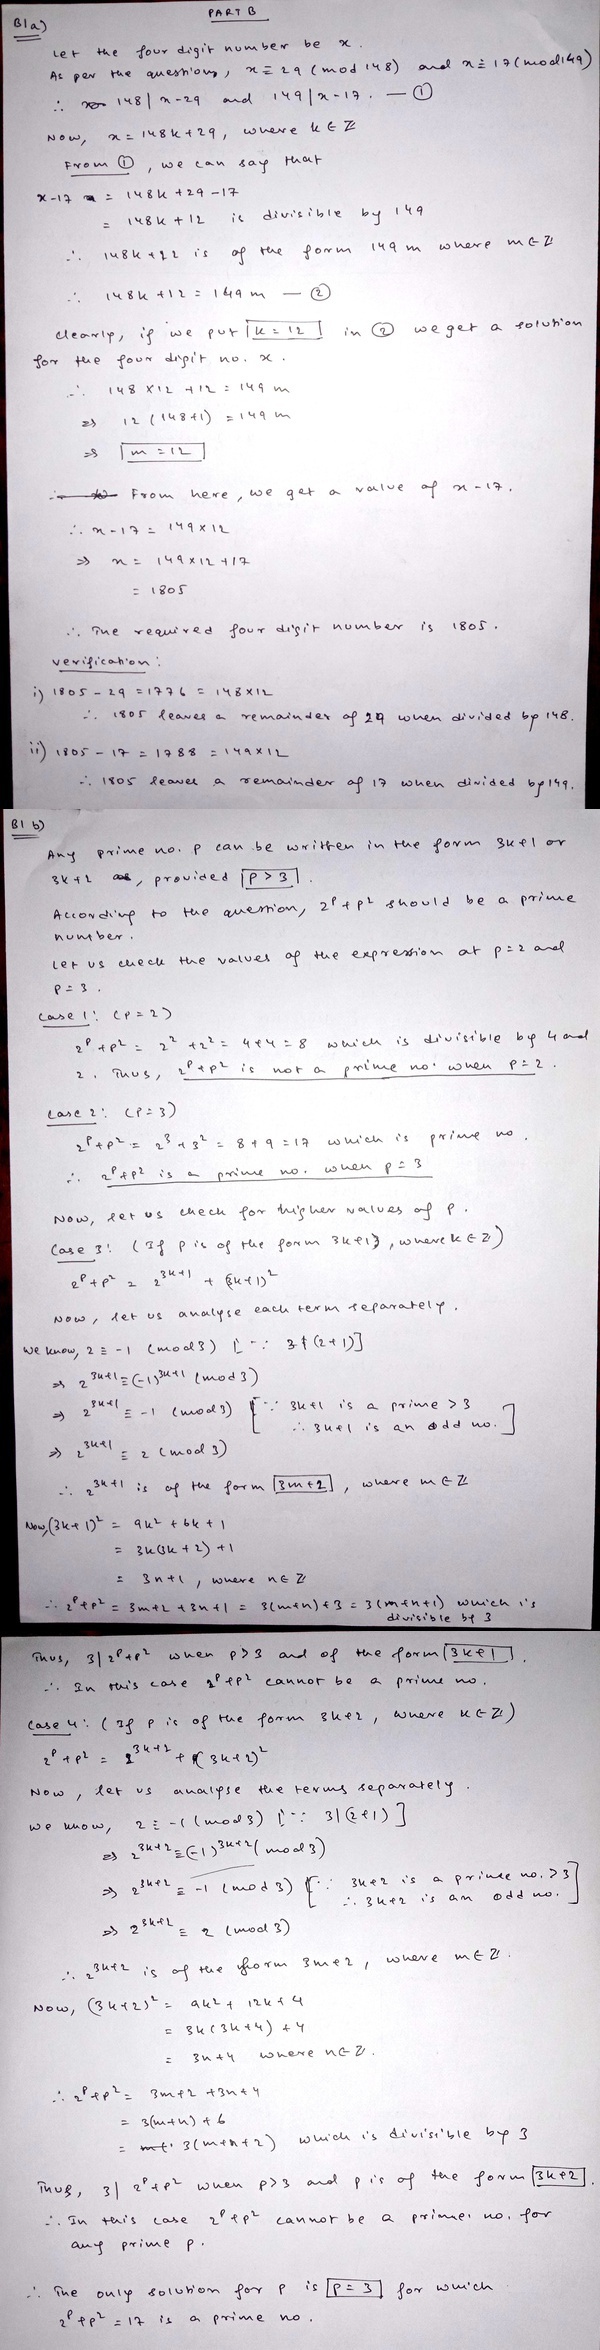 PART B
B1 a)
Let the four digit number be x.
As per the question, x ≡ 29 (mod 148) and x ≡ 17 (mod 149)
∴ 148 | x-29 and 149 | x-17. — ①
Now, x = 148k + 29, where k ∈ Z
From ①, we can say that
x-17 = 148k + 29 - 17
= 148k + 12 is divisible by 149
∴ 148k + 12 is of the form 149 m where m ∈ Z
∴ 148k + 12 = 149 m — ②
Clearly, if we put k = 12 in ② we get a solution
for the four digit no. x.
∴ 148 × 12 + 12 = 149 m
⇒ 12 (148+1) = 149 m
⇒ m = 12
From here, we get a value of x-17.
∴ x-17 = 149 × 12
⇒ x = 149 × 12 + 17
= 1805
∴ The required four digit number is 1805.
Verification:
i) 1805 - 29 = 1776 = 148 × 12
∴ 1805 leaves a remainder of 29 when divided by 148.
ii) 1805 - 17 = 1788 = 149 × 12
∴ 1805 leaves a remainder of 17 when divided by 149.
B1 b)
Any prime no. p can be written in the form 3k+1 or
3k+2, provided p > 3.
According to the question, 2^p + p^2 should be a prime
number.
Let us check the values of the expression at p=2 and
p=3.
Case 1: (p=2)
2^p + p^2 = 2^2 + 2^2 = 4+4 = 8 which is divisible by 4 and
2. Thus, 2^p + p^2 is not a prime no. when p=2.
Case 2: (p=3)
2^p + p^2 = 2^3 + 3^2 = 8+9 = 17 which is prime no.
∴ 2^p + p^2 is a prime no. when p=3
Now, let us check for higher values of p.
Case 3: (If p is of the form 3k+1, where k ∈ Z)
2^p + p^2 = 2^{3k+1} + (3k+1)^2
Now, let us analyse each term separately.
We know, 2 ≡ -1 (mod 3) [∵ 3 | (2+1)]
⇒ 2^{3k+1} ≡ (-1)^{3k+1} (mod 3)
⇒ 2^{3k+1} ≡ -1 (mod 3) [∵ 3k+1 is a prime > 3
∴ 3k+1 is an odd no.]
⇒ 2^{3k+1} ≡ 2 (mod 3)
∴ 2^{3k+1} is of the form 3m+2, where m ∈ Z
Now, (3k+1)^2 = 9k^2 + 6k + 1
= 3k(3k+2) + 1
= 3n+1, where n ∈ Z
∴ 2^p + p^2 = 3m+2+3n+1 = 3(m+n)+3 = 3(m+n+1) which is
divisible by 3
Thus, 3 | 2^p + p^2 when p>3 and of the form 3k+1.
∴ In this case 2^p + p^2 cannot be a prime no.
Case 4: (If p is of the form 3k+2, where k ∈ Z)
2^p + p^2 = 2^{3k+2} + (3k+2)^2
Now, let us analyse the terms separately.
We know, 2 ≡ -1 (mod 3) [∵ 3 | (2+1)]
⇒ 2^{3k+2} ≡ (-1)^{3k+2} (mod 3)
⇒ 2^{3k+2} ≡ -1 (mod 3) [∵ 3k+2 is a prime no. > 3
∴ 3k+2 is an odd no.]
⇒ 2^{3k+2} ≡ 2 (mod 3)
∴ 2^{3k+2} is of the form 3m+2, where m ∈ Z.
Now, (3k+2)^2 = 9k^2 + 12k + 4
= 3k(3k+4) + 4
= 3n+4 where n ∈ Z.
∴ 2^p + p^2 = 3m+2 +3n+4
= 3(m+n) + 6
= 3(m+n+2) which is divisible by 3
Thus, 3 | 2^p + p^2 when p>3 and p is of the form 3k+2.
∴ In this case 2^p + p^2 cannot be a prime no. for
any prime p.
∴ The only solution for p is p=3 for which
2^p + p^2 = 17 is a prime no.